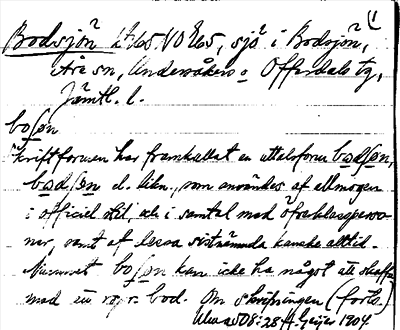 1
Bodsjön 265. V0 265, sjö i Bodsjön,
Åre sn, Undersåkers o Offerdals tg,
Jämtl. l.
boʃɷn
Skriftformen har framkallat en uttalsform bodʃɷn,
bɷdʃɷn el. likn., som användes af allmogen
i officiel stil, och i samtal med öfverklassperso-
ner, samt af dessa sistnämnda kanske alltid.
Numret boʃɷn kan icke ha något att skaffa
med ett bod. Om skrifningen (forts.)
508:28 H. Geijer 1904.